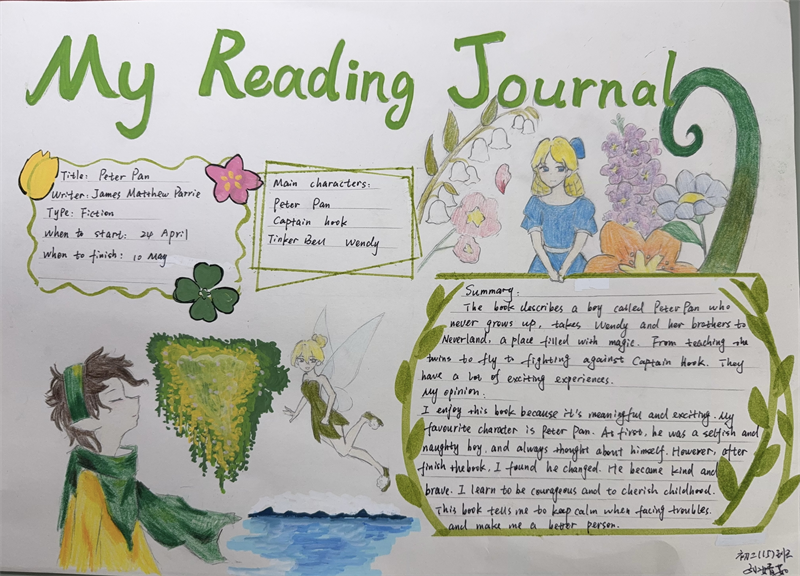 My Reading Journal
Title: Peter Pan
Writer: James Matthew Parrie
Type: Fiction
when to start: 24 April
when to finish: 10 May
Main characters:
Peter Pan
Captain hook
Tinker Bell Wendy
Summary:
The book describes a boy called Peter Pan who
never grows up, takes Wendy and her brothers to
Neverland, a place filled with magic. From teaching the
twins to fly to fighting against Captain Hook. They
have a lot of exciting experiences.
My opinion:
I enjoy this book because it's meaningful and exciting. My
favourite charater is Peter Pan. As first, he was a selfish and
naughty boy, and always thought about himself. However, after
finish the book, I found he changed. He became kind and
brave. I learn to be courageous and to cherish childhood.
This book tells me to keep calm when facing troubles.
and make me a better person.
初二(15)班